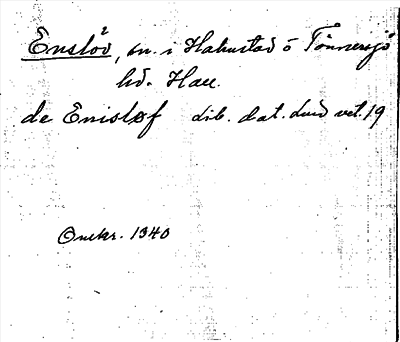 Enslöv, sn. i Halmstad o Tönnersjö
hd. Hall.
de Enisløf lib. dat. Lund vet. 19
Omkr. 1340